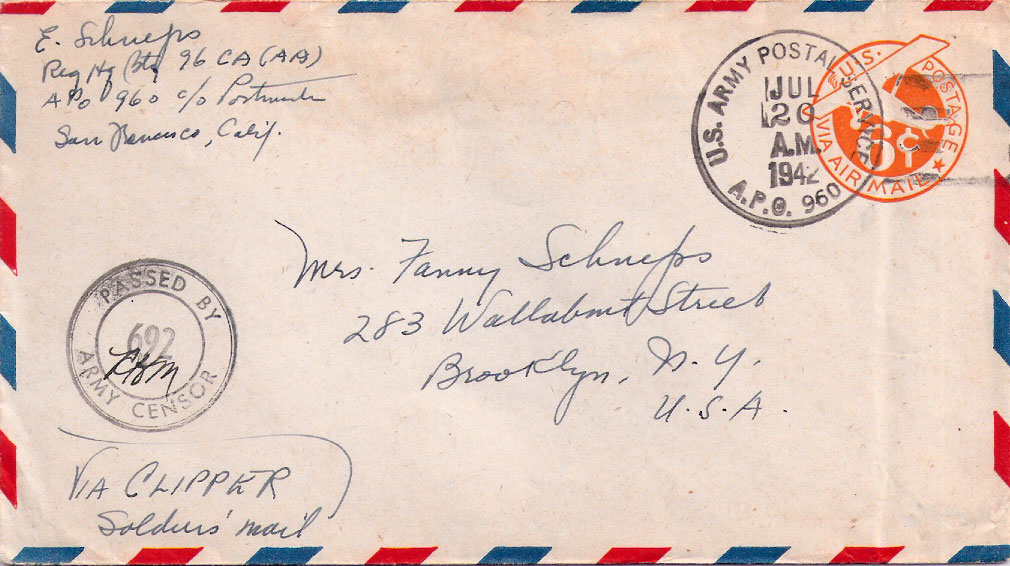 E. Schneps
Reg Hq Btry 96 CA (AA)
APO 960 c/o Postmaster
San Francisco, Calif.
U.S. ARMY POSTAL SERVICE
JUL
20
A.M.
1942
A.P.O. 960
U.S. POSTAGE
6¢
VIA AIR MAIL
Mrs. Fanny Schneps
283 Wallabout Street
Brooklyn, N.Y.
U.S.A.
PASSED BY
692
ARMY CENSOR
VIA CLIPPER
Soldiers' mail